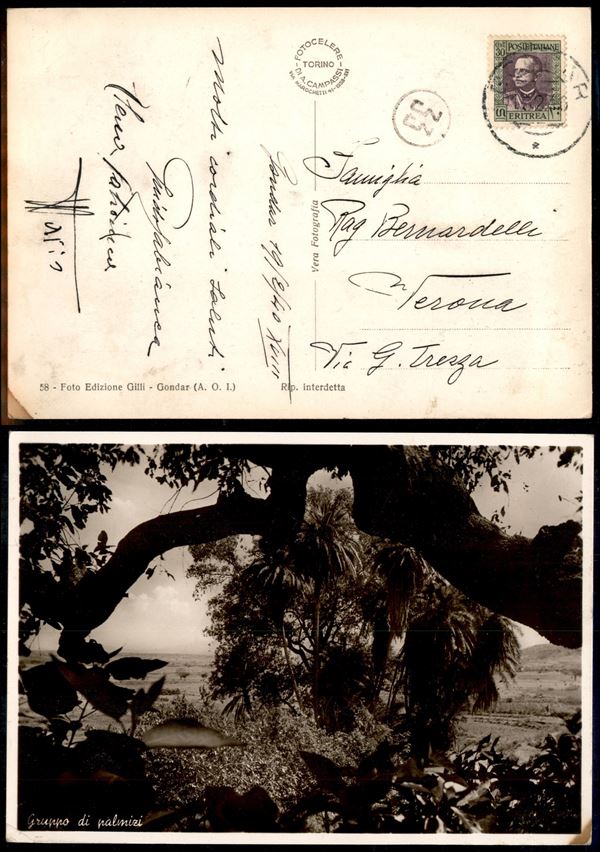 FOTOCELERE
TORINO
DI A. CAMPASSI
POSTE ITALIANE
ERITREA
23
Famiglia
Rag Bernardelli
Verona
Via G. Trezza
Gondar 19/2/40 XVIII
Molti cordiali saluti
Vera Fotografia
58 - Foto Edizione Gilli - Gondar (A. O. I.)
Rip. interdetta
Gruppo di palmizi